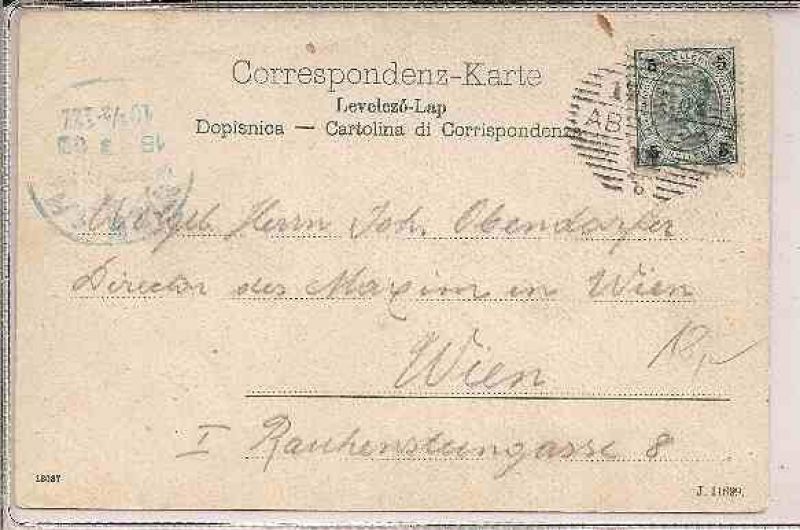 Correspondenz-Karte
Levelező-Lap
Dopisnica — Cartolina di Corrispondenza
5 5
AB
6
Herrn Joh. Obendorfer
Director des Maxim in Wien
Wien
I Rauhensteingasse 8
18087
J. 11699.